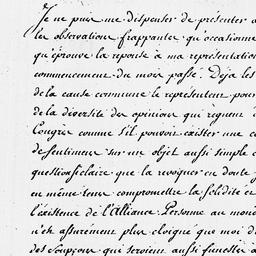 Je ne puis me dispenser de présenter a
les observations frappantes qu'occasionne
qu'éprouve la reponse à ma représentation
commencement du mois passé. Deja les
de la cause commune se représentent pour
de la diversité des opinions qui règnent
Congrès comme s'il pouvoit exister une
de sentimens sur un objet aussi simple
question si claire que la revoquer en doute
en même tems compromettre la solidité et
l'existence de l'Alliance. Personne au mond
n'est assurément plus éloigné que moi d
des soupçons qui seroient aussi funestes à